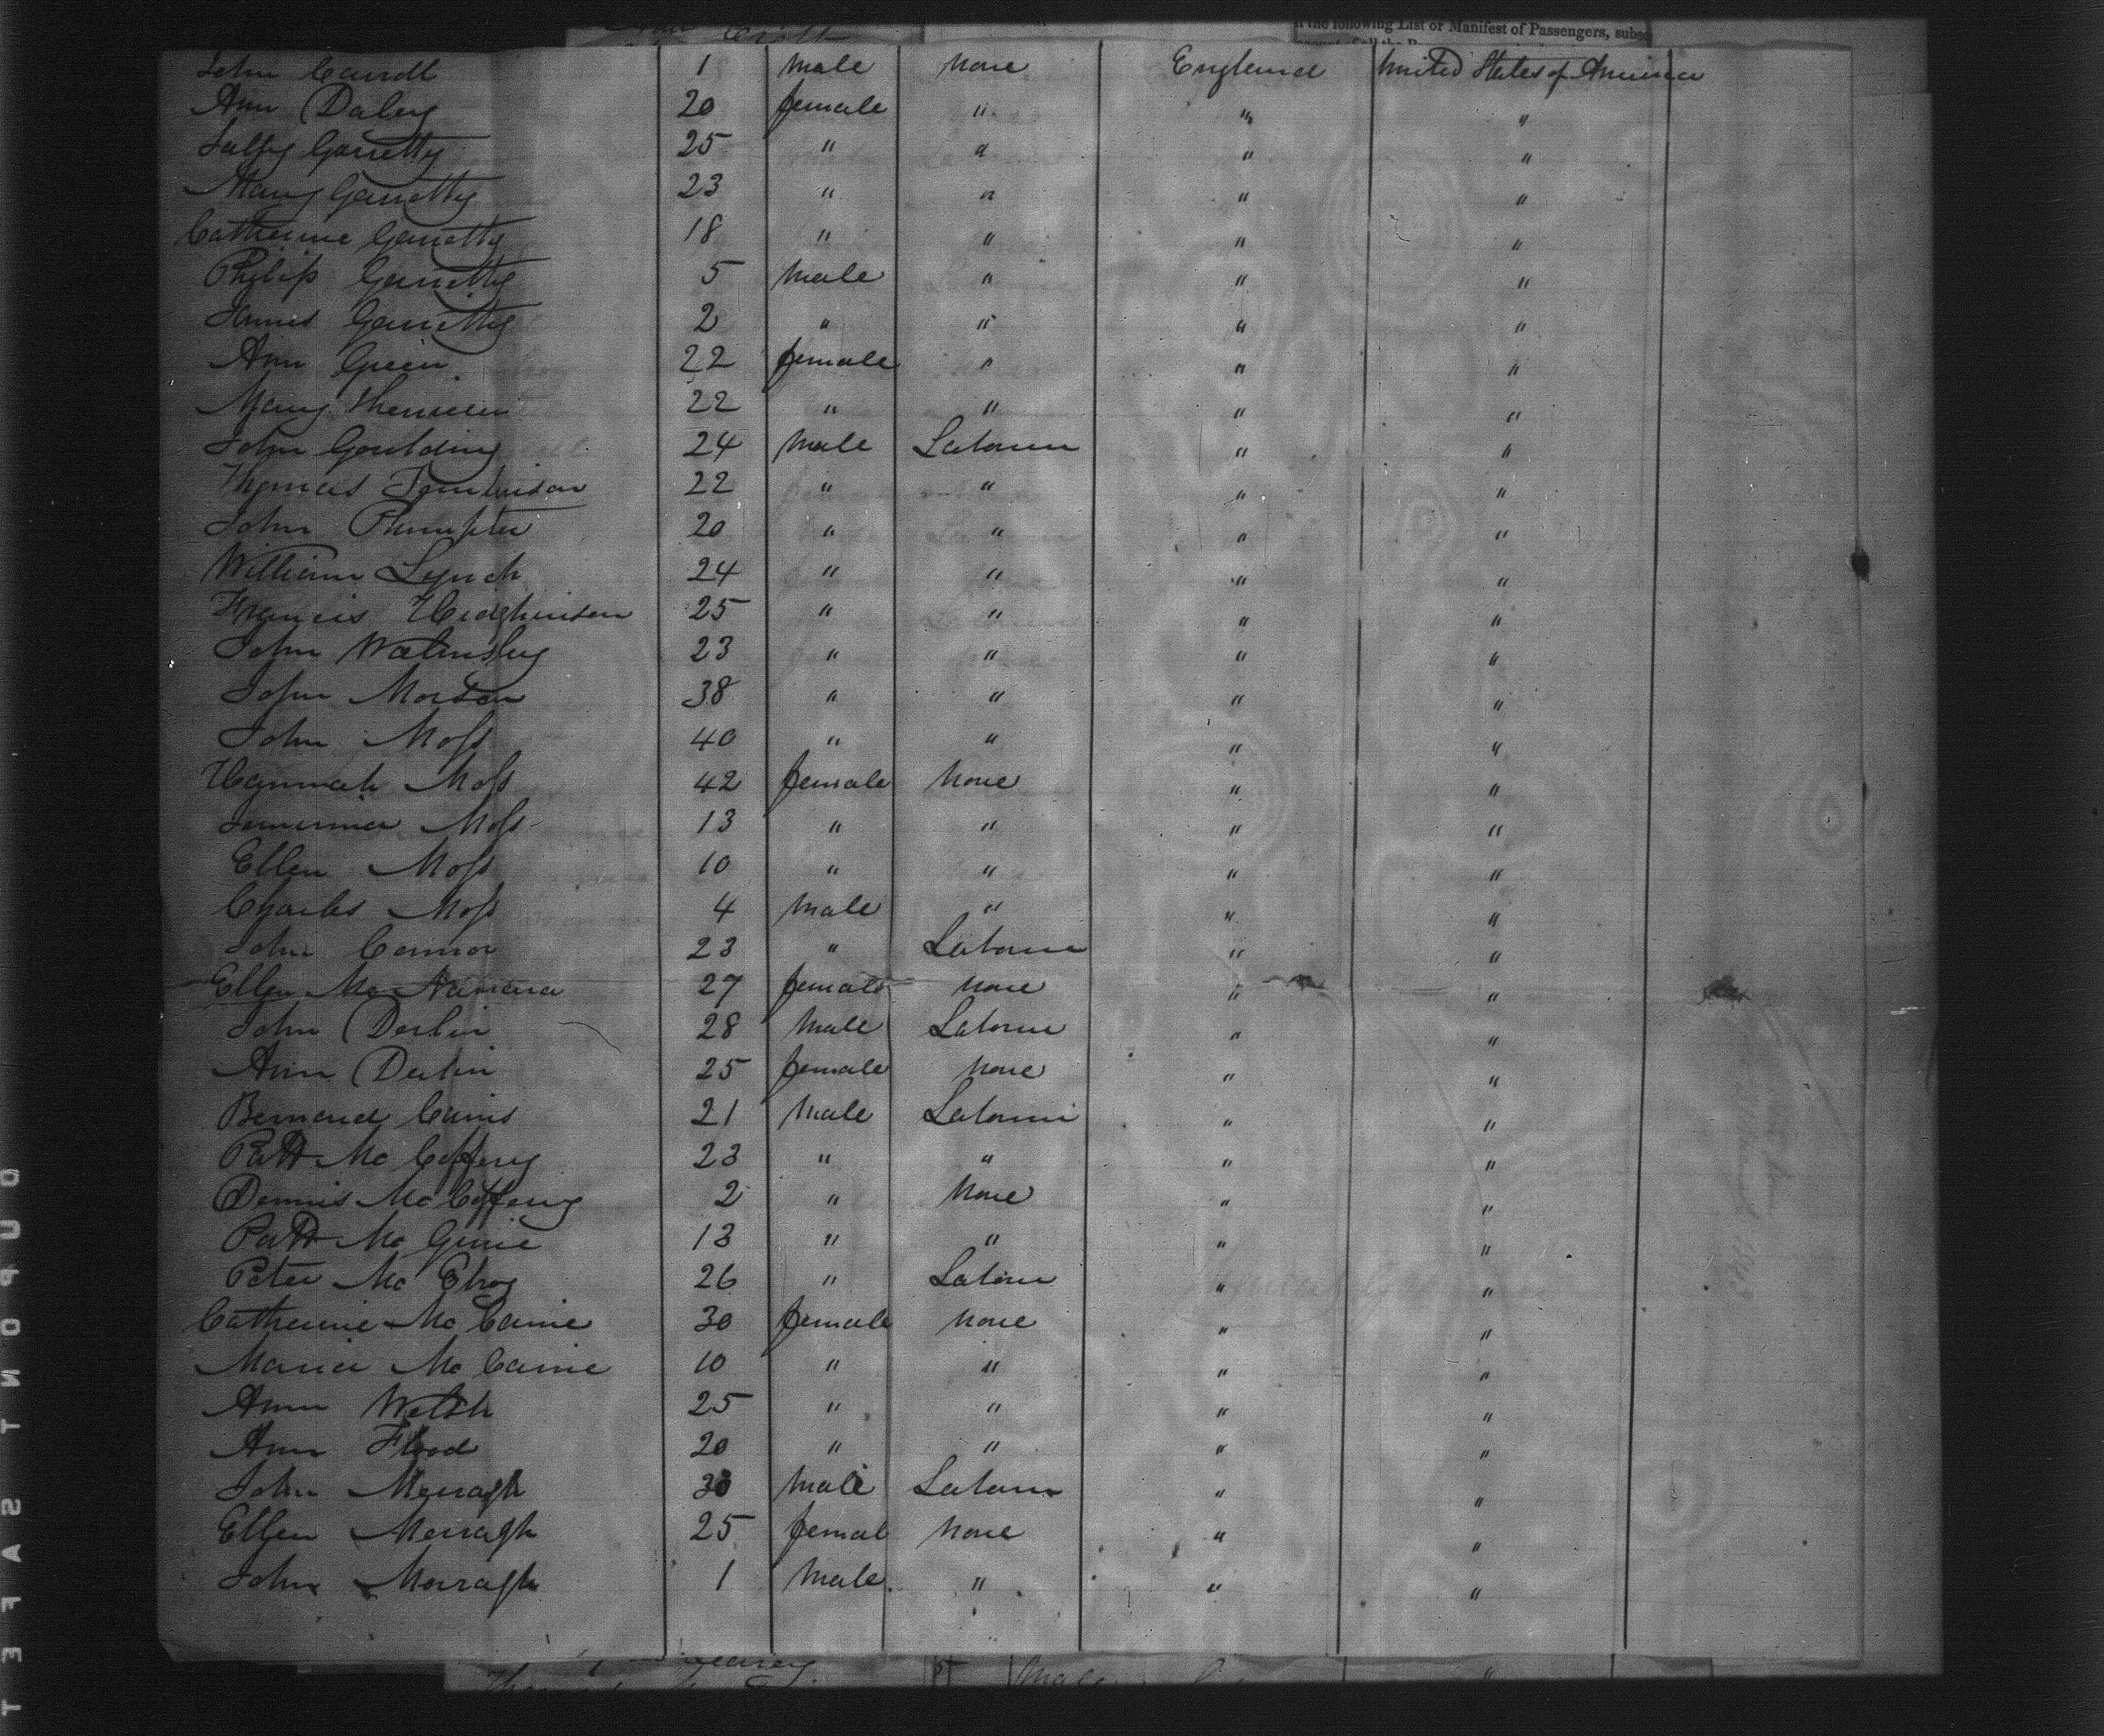 n the following List or Manifest of Passengers, subs
John Carroll 1 male none England United States of America
Ann Daley 20 female " " "
Sally Garretty 25 " " " "
Mary Garretty 23 " " " "
Catherine Garretty 18 " " " "
Philip Garretty 5 male " " "
James Garretty 2 " " " "
Ann Green 22 female " " "
Mary 22 " " " "
John Goulding 24 male Laborer " "
Thomas Tomlinson 22 " " " "
John Plumpter 20 " " " "
William Lynch 24 " " " "
Francis 25 " " " "
John Walmsley 23 " " " "
John Morton 38 " " " "
John Moss 40 " " " "
Hannah Moss 42 female none " "
Jemima Moss 13 " " " "
Ellen Moss 10 " " " "
Charles Moss 4 male " " "
John Connor 23 " Laborer " "
Ellen McNamara 27 female none " "
John Devlin 28 male Laborer " "
Ann Devlin 25 female none " "
Bernard Cairns 21 male Laborer " "
Patt Mc Caffery 23 " " " "
Dennis Mc Caffery 2 " none " "
Patt Mc Ginie 13 " " " "
Peter Mc Elroy 26 " Laborer " "
Catherine Mc Caine 30 female none " "
Maria Mc Caine 10 " " " "
Ann Welsh 25 " " " "
Ann Flood 20 " " " "
John Merragh 30 male Laborer " "
Ellen Merragh 25 femal none " "
John Merragh 1 male " " "